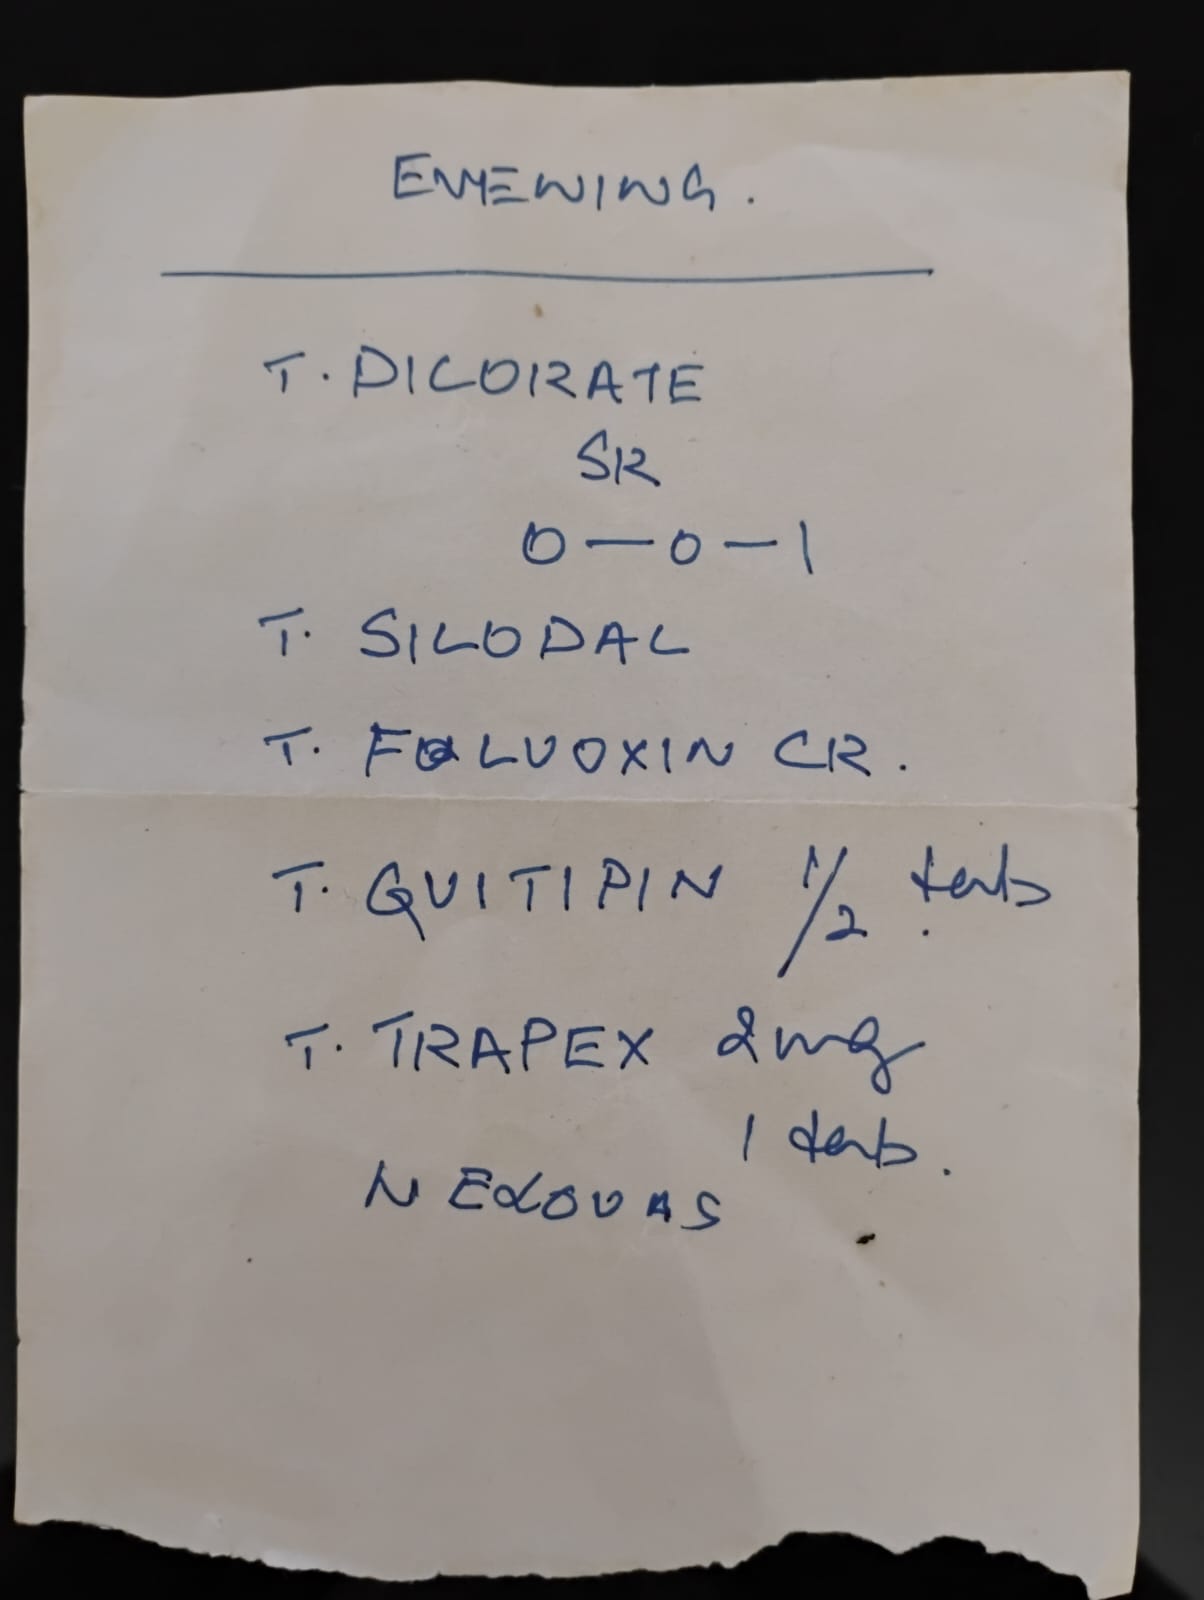 EVYEWING.
T. DICORATE
SR
0-0-1
T. SILODAL
T. FOLUOXIN CR.
T. QUITIPIN 1/2 tab
T. TRAPEX 2mg
1 tab.
NEXOVAS